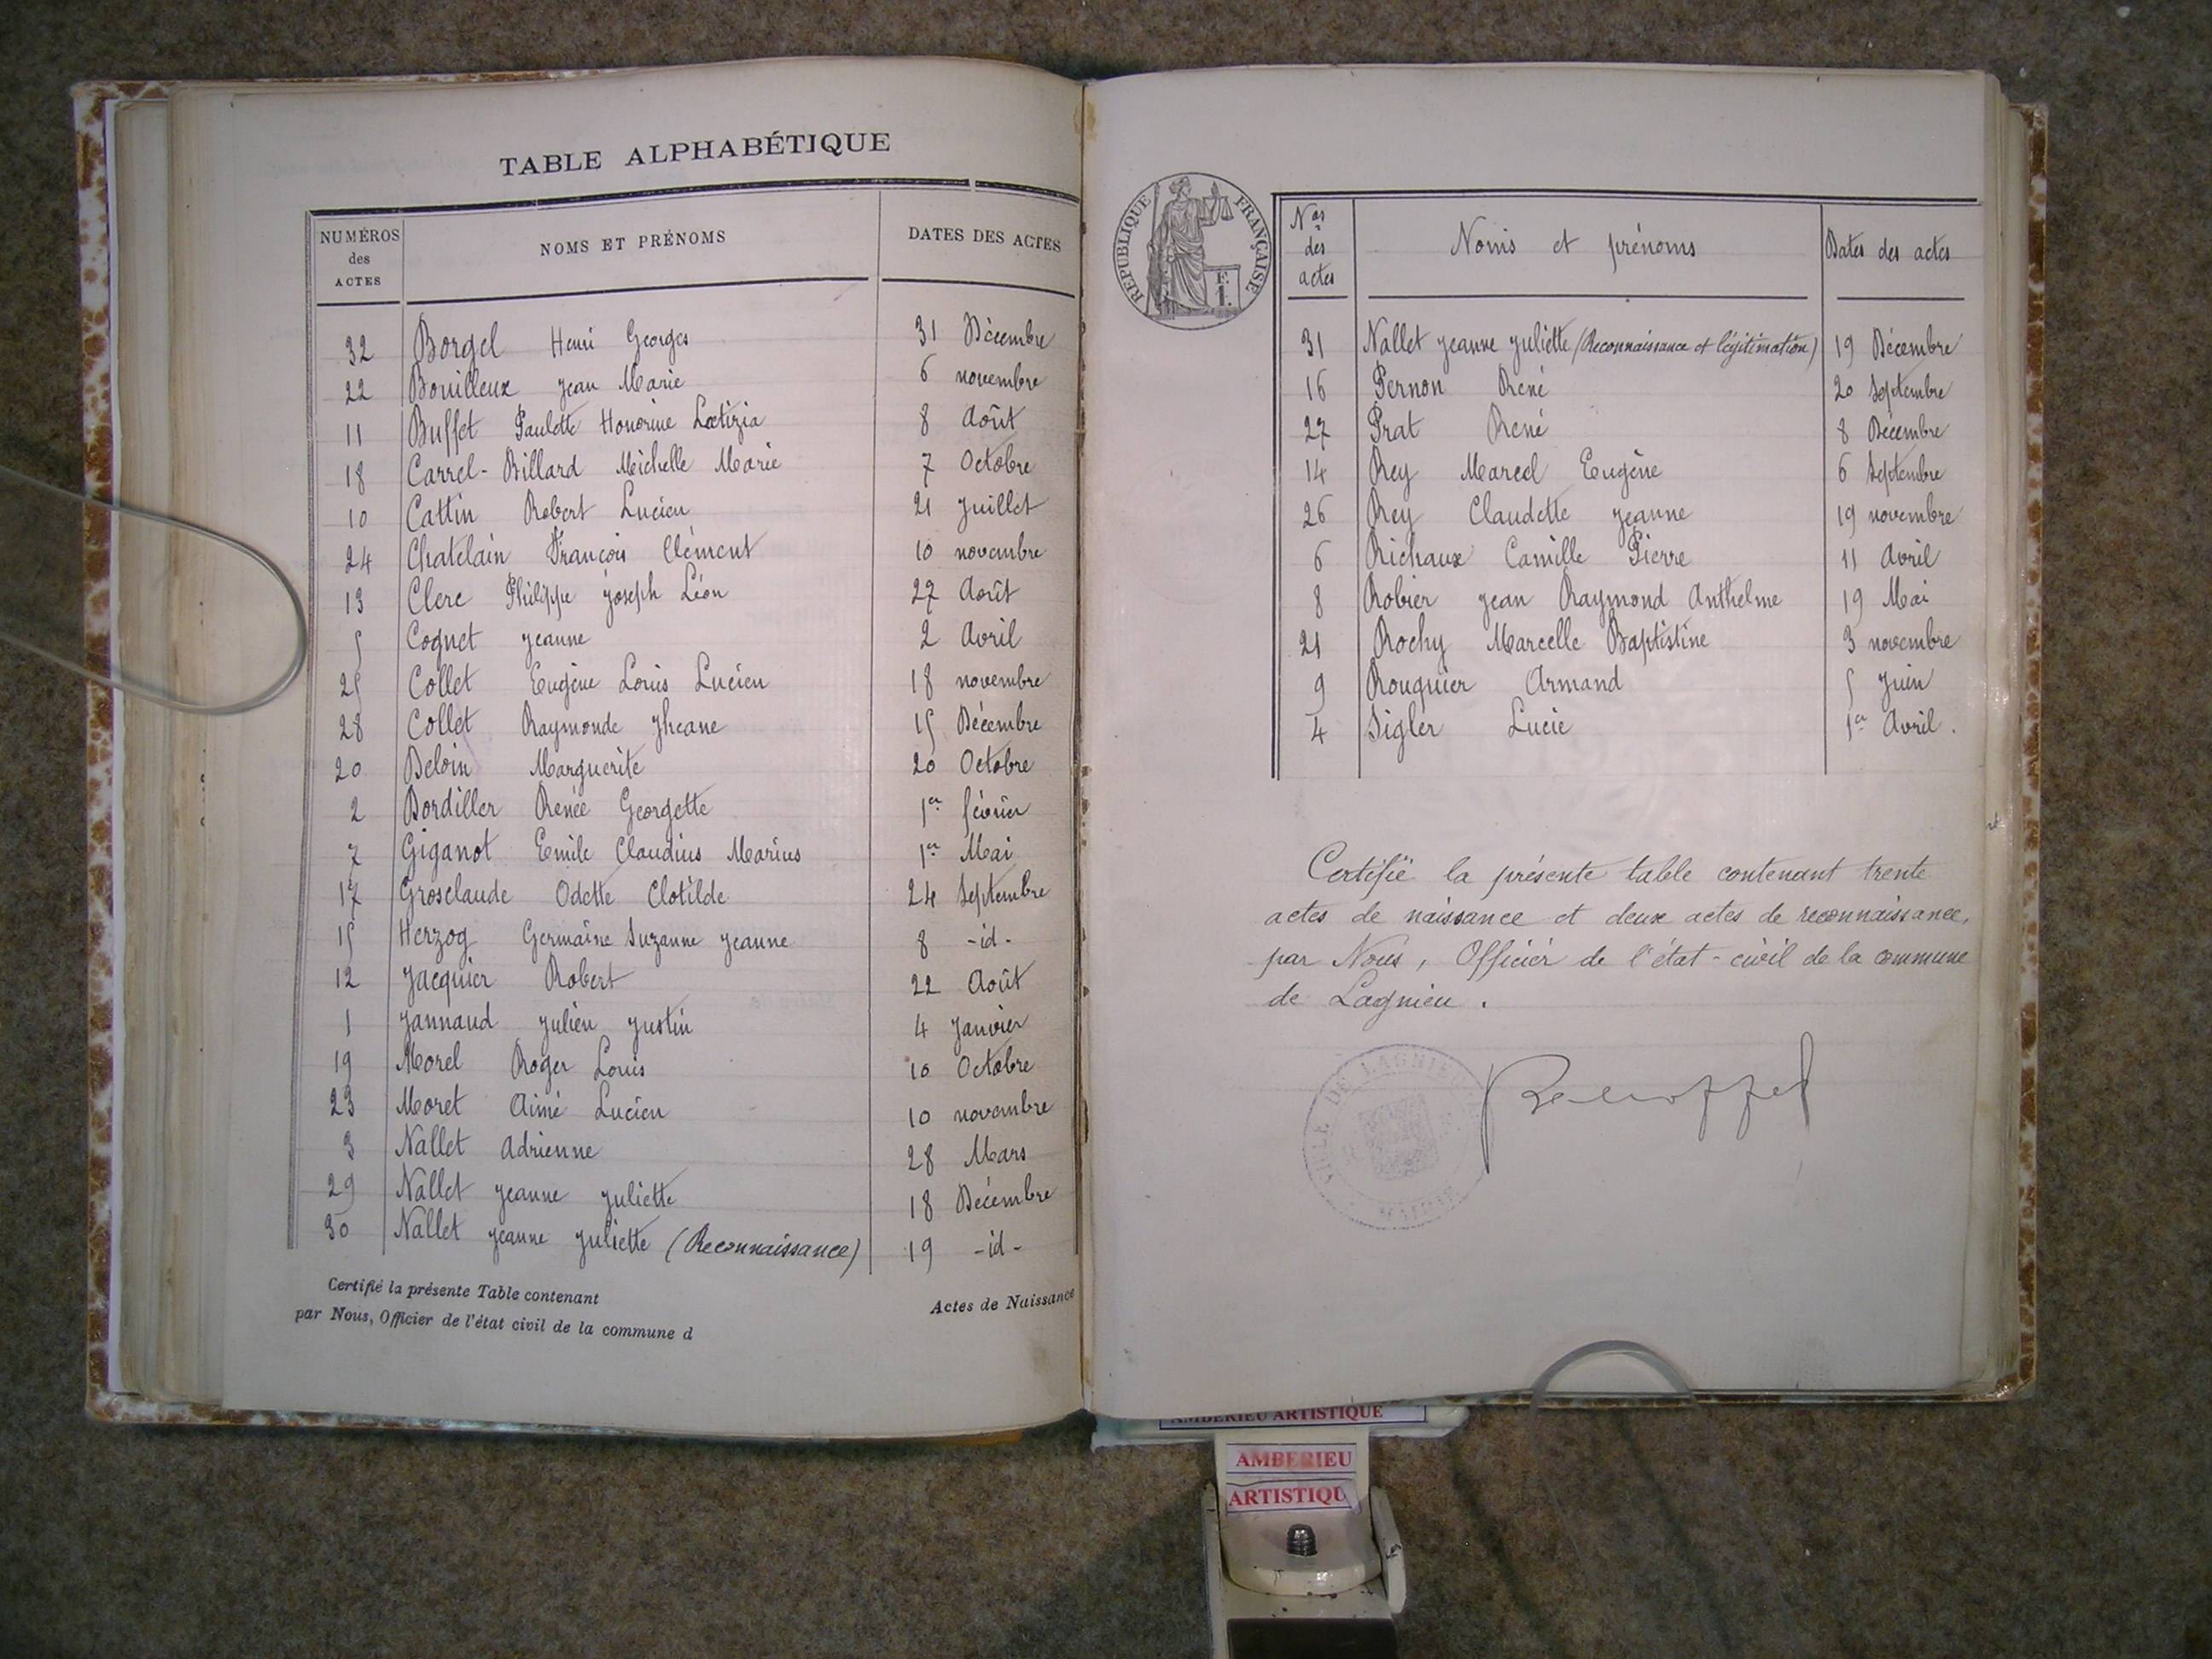 TABLE ALPHABÉTIQUE
NUMÉROS des ACTES NOMS ET PRÉNOMS DATES DES ACTES
32 Borgel Henri Georges 31 Décembre
22 Bouilleux Jean Marie 6 novembre
11 Buffet Paulette Honorine Lœtizia 8 Août
18 Carrel-Billard Michelle Marie 7 Octobre
10 Cattin Robert Lucien 21 Juillet
24 Chatelain François Clément 10 novembre
13 Clerc Philippe Joseph Léon 27 Août
5 Coquet Jeanne 2 Avril
25 Collet Eugène Louis Lucien 18 novembre
28 Collet Raymonde Jheane 15 Décembre
20 Deloin Marguerite 20 Octobre
2 Dordiller Renée Georgette 1er février
7 Giganot Emile Claudius Marius 1er Mai
17 Grosclaude Odette Clotilde 24 Septembre
15 Herzog Germaine Suzanne Jeanne 8 -id-
12 Jacquier Robert 22 Août
1 Jannaud Julien Justin 4 Janvier
19 Morel Roger Louis 10 Octobre
23 Moret Aimé Lucien 10 novembre
3 Nallet Adrienne 28 Mars
29 Nallet Jeanne Juliette 18 Décembre
30 Nallet Jeanne Juliette (Reconnaissance) 19 -id-
Certifié la présente Table contenant Actes de Naissance
par Nous, Officier de l'état civil de la commune d
RÉPUBLIQUE FRANÇAISE
F. 1.
Nos des actes Noms et prénoms Dates des actes
31 Nallet Jeanne Juliette (Reconnaissance et légitimation) 19 Décembre
16 Pernon René 20 Septembre
27 Prat René 8 Décembre
14 Rey Marcel Eugène 6 Septembre
26 Rey Claudette Jeanne 19 novembre
6 Richaux Camille Pierre 11 Avril
8 Robier Jean Raymond Anthelme 19 Mai
21 Rochy Marcelle Baptistine 3 novembre
9 Rouquier Armand 5 Juin
4 Sigler Lucie 1er Avril.
Certifié la présente table contenant trente
actes de naissance et deux actes de reconnaissance,
par Nous, Officier de l'état-civil de la commune
de Lagnieu.
VILLE DE LAGNIEU
MAIRIE
AMBERIEU ARTISTIQUE
AMBERIEU
ARTISTIQU